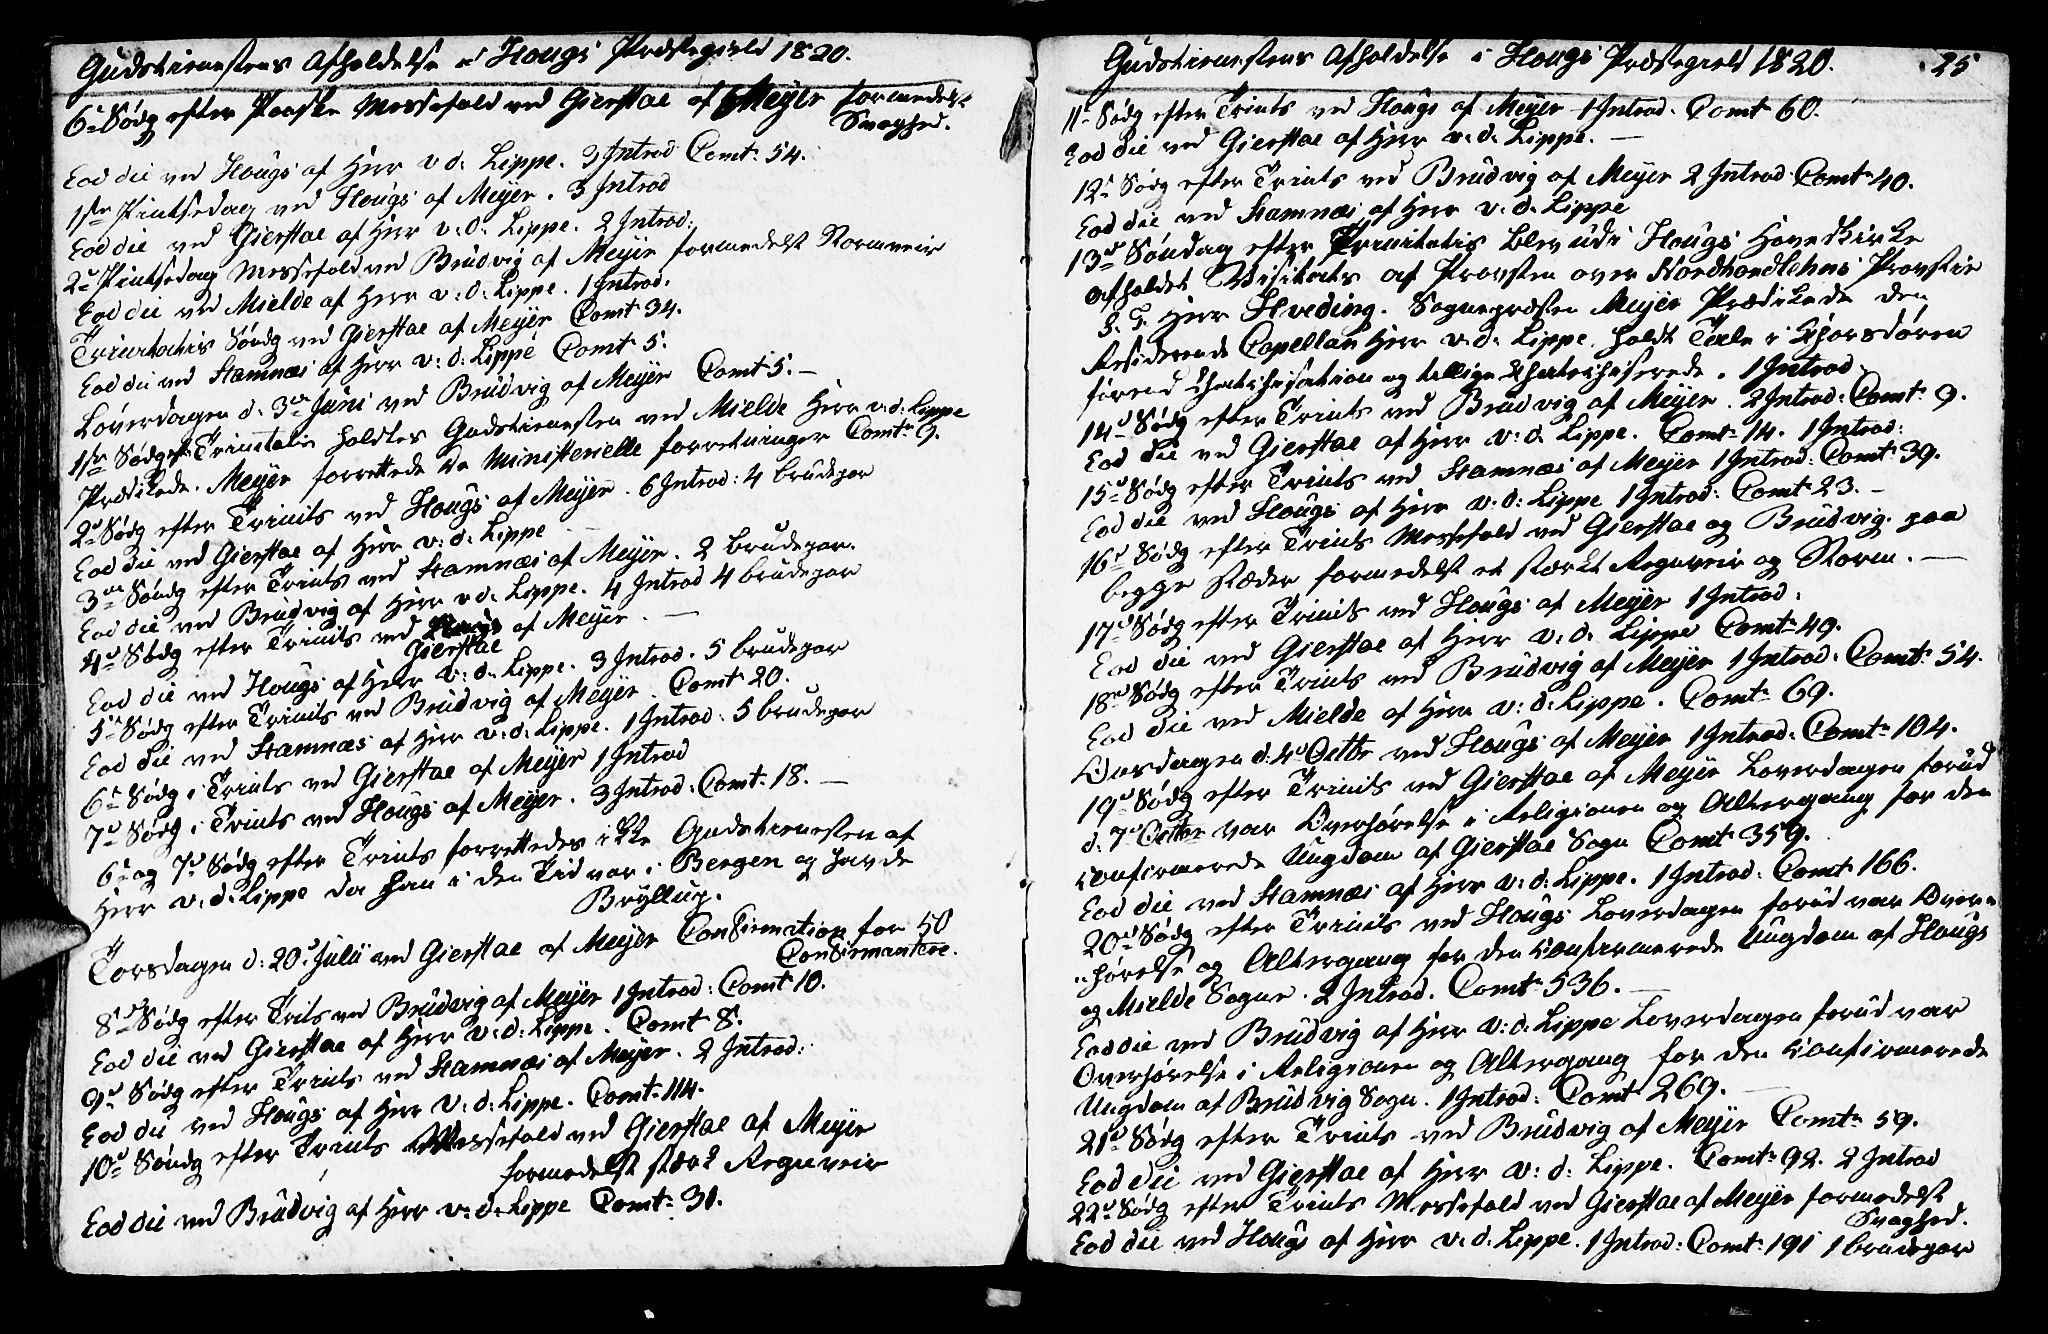 Gudstienestens Afholdelse i Hougs Præstegield 1820.
6te Sødg efter Paaske Messefald ved Gierstae af Meyer formedelst
Svaghed.
Eod die ved Hougs af Herr v: d: Lippe. 3 Introd Comt: 54.
1ste Pintsedag ved Hougs af Meyer. 3 Introd
Eod die ved Gierstae af Herr v: d: Lippe. 2 Introd:
2d Pintsedag Messefald ved Brudvig af Meyer formedelst Stormveir
Eod die ved Mielde af Herr v: d: Lippe. 1 Introd.
Trinitatis Søndg ved Gierstae af Meyer Comt 34.
Eod die ved Stamnæs af Herr v: d: Lippe Comt 5.
Løverdagen d: 3die Juni ved Brudvig af Meyer Comt 5. –
1ste Sødg eft Trinitatis holdtes Gudstienesten ved Mielde Herr v: d: Lippe
Prædikede. Meyer forrettede de Ministerielle forretninger Comt: 9.
2d Sødg efter Trinits ved Hougs af Meyer. 6 Introd: 4 brudepar
Eod die ved Gierstae af Herr v: d: Lippe –
3die Søndg efter Trinits ved Stamnæs af Meyer. 2 brudepar.
Eod die ved Brudvig af Herr v d: Lippe. 4 Introd 4 brudepar
4d Sødg efter Trinits ved Gierstae af Meyer. –
Eod die ved Hougs af Herr v: d: Lippe. 3 Introd. 5 brudepar
5t Sødg efter Trinits ved Brudvig af Meyer. Comt 20.
Eod die ved Stamnæs af Herr v: d: Lippe. 1 Introd: 5 brudepar
6t Sødg i Trinits ved Gierstae af Meyer 1 Introd
7d Sødg i Trinits ved Hougs af Meyer. 3 Introd: Comt: 18. –
6t og 7d Sødg efter Trinits forrettedes ikke Gudstienesten af
Herr v: d: Lippe da han i den Tid var i Bergen og havde
Bryllup.
Torsdagen d: 20d Julii ved Gierstae af Meyer Confirmation for 50
Confirmantere.
8d Sødg efter Trits ved Brudvig af Meyer 1 Introd: Comt 10.
Eod die ved Gierstae af Herr v: d: Lippe. Comt 8.
9d Sødg efter Trinits ved Stamnæs af Meyer. 2 Introd:
Eod die ved Hougs af Herr v: d: Lippe. Comt 114.
10d Søndg efter Trinits Messefald ved Gierstae af Meyer
formedelst stærk Regnveir
Eod die ved Brudvig af Herr v: d: Lippe Comt: 31.
Gudstienestens Afholdelse i Hougs Præstegield 1820. 25
11t Sødg efter Trinits ved Hougs af Meyer 1 Introd. Comt 60.
Eod die ved Gierstae af Herr v: d: Lippe. –
12t Sødg efter Trinits ved Brudvig af Meyer 2 Introd: Comt 40.
Eod die ved Stamnæs af Herr v: d: Lippe
13d Søndag efter Trinitatis blev udi Hougs Hovedkirke
afholdet Visitats af Provsten over Nordhordlehns Provstie
S. T. Herr Hveding. Sognepræsten Meyer Prædikede den
Residerende Capellan Herr v: d: Lippe holdt Tale i Chorsdøren
førend Chatechisation og tillige Chatechiserede. 1 Introd.
14d Sødg efter Trinits ved Brudvig af Meyer. 2 Introd: Comt 9.
Eod die ved Gierstae af Herr v: d: Lippe. Comt 14. 1 Introd:
15d Sødg efter Trinits ved Stamnæs af Meyer 1 Introd: Comt 39.
Eod die ved Hougs af Herr v: d: Lippe 1 Introd: Comt 23. –
16d Sødg efter Trinits Messefald ved Gierstae og Brudvig paa
begge Stæder formedelst et stærkt Regnveir og Storm. –
17d Sødg efter Trinits ved Hougs af Meyer 1 Introd:
Eod die ved Gierstae af Herr v: d: Lippe Comt 49.
18d Sødg efter Trinits ved Brudvig af Meyer 1 Introd: Comt: 54.
Eod die ved Mielde af Herr v: d: Lippe. Comt: 69.
Onsdagen d. 4d Octbr ved Hougs af Meyer 1 Introd: Comt: 104.
19d Sødg efter Trinits ved Gierstae af Meyer Løverdagen forud
d: 7d Octbr var Overhørelse i Religionen og Altergang for den
confirmerede Ungdom af Gierstae Sogn Comt 359.
Eod die ved Stamnæs af Herr v: d: Lippe. 1 Introd: Comt 166.
20d Sødg efter Trinits ved Hougs Løverdagen forud var Over=
=hørelse og Altergang for den confirmerede Ungdom af Hougs
og Mielde Sogne. 2 Introd. Comt 536. –
Eod die ved Brudvig af Herr v: d: Lippe Løverdagen forud var
Overhørelse i Religionen og Altergang for den confirmerede
Ungdom af Brudvig Sogn. 1 Introd: Comt 269. –
21d Sødg efter Trinits ved Brudvig af Meyer Comt: 59.
Eod die ved Gierstae af Herr v: d: Lippe. Comt: 92. 2 Introd
22d Sødg efter Trinits Messefald ved Gierstae af Meyer formedelst
Svaghed.
Eod die ved Hougs af Herr v: d: Lippe. 1 Introd: Comt: 191 1 brudepar